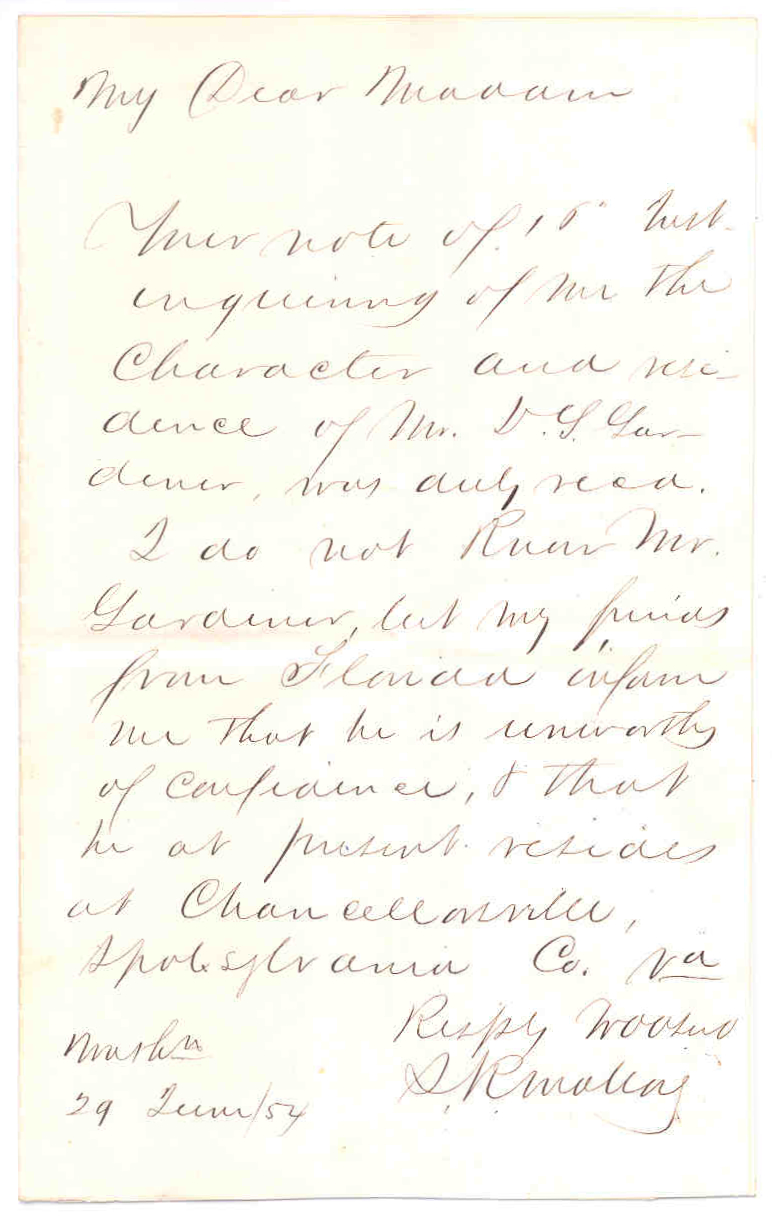 My Dear Madam
Your note of 15" Inst.
inquiring of me the
Character and resi-
dence of Mr. D. S. Gar-
dener, was duly recd.
I do not Know Mr.
Gardener, but my friends
from Florida inform
me that he is unworthy
of confidence, & that
he at present resides
at Chancellorsville,
Spotsylvania Co. Va
Respy
S R Mallory
Washn
29 June/54